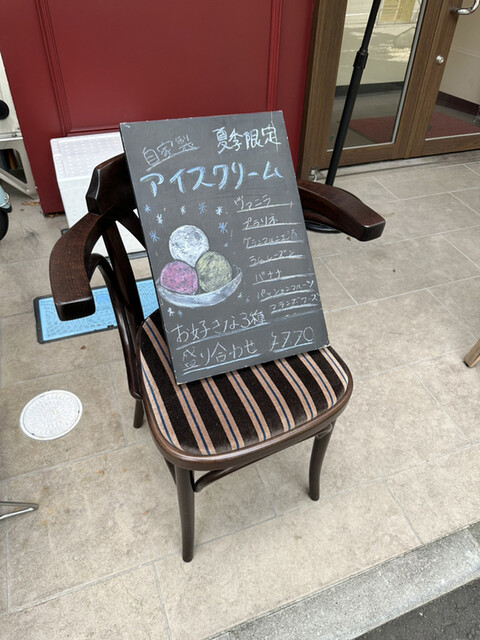 自家製 夏季限定
アイスクリーム
ヴァニラ
プラリネ
グランマルニエ
ラムレーズン
バナナ
パッションフルーツ
フランボワーズ
お好きな3種
盛り合わせ ¥770